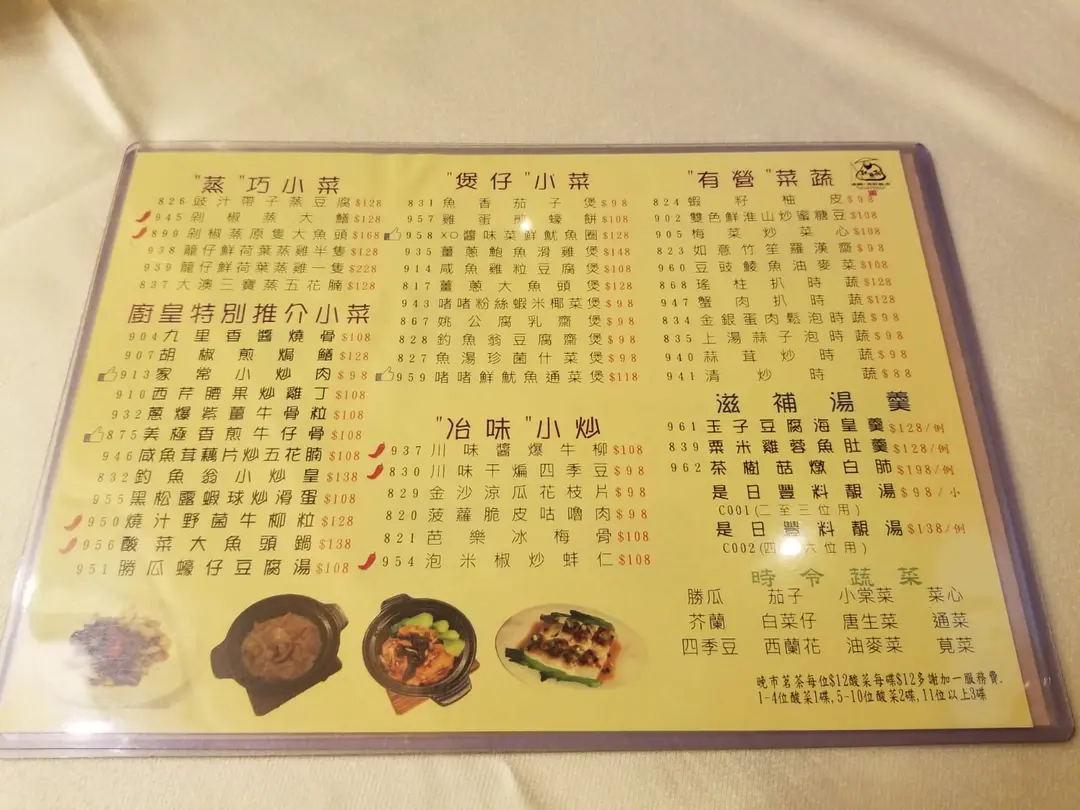 "蒸"巧小菜
826 豉汁帶子蒸豆腐 $128
945 剁椒蒸大鱔 $128
899 剁椒蒸原隻大魚頭 $168
938 龍仔鮮荷葉蒸雞半隻 $128
939 龍仔鮮荷葉蒸雞一隻 $228
837 大澳三寶蒸五花腩 $128
廚皇特別推介小菜
904 九里香醬燒骨 $108
907 胡椒煎焗鱔 $128
913 家常小炒肉 $98
910 西芹腰果炒雞丁 $108
932 蔥爆紫薑牛骨粒 $108
875 美極香煎牛仔骨 $108
946 咸魚茸藕片炒五花腩 $108
832 釣魚翁小炒皇 $138
955 黑松露蝦球炒滑蛋 $108
950 燒汁野菌牛柳粒 $128
956 酸菜大魚頭鍋 $138
951 勝瓜蠔仔豆腐湯 $108
"煲仔"小菜
831 魚香茄子煲 $98
957 雞蛋煎蠔餅 $108
958 XO醬味菜鮮魷魚圈 $128
935 薑蔥鮑魚滑雞煲 $148
914 咸魚雞粒豆腐煲 $98
817 薑蔥大魚頭煲 $128
943 啫啫粉絲蝦米椰菜煲 $98
867 姚公腐乳齋煲 $98
828 釣魚翁豆腐齋煲 $98
827 魚湯珍菌什菜煲 $98
959 啫啫鮮魷魚通菜煲 $118
"冶味"小炒
937 川味醬爆牛柳 $108
830 川味干煸四季豆 $98
829 金沙涼瓜花枝片 $98
820 菠蘿脆皮咕嚕肉 $98
821 芭樂冰梅骨 $108
954 泡米椒炒蚌仁 $108
"有營"菜蔬
824 蝦籽柚皮 $98
902 雙色鮮淮山炒蜜糖豆 $108
905 梅菜炒菜心 $108
823 如意竹笙羅漢齋 $98
960 豆豉鯪魚油麥菜 $108
868 瑤柱扒時蔬 $128
947 蟹肉扒時蔬 $128
834 金銀蛋肉鬆泡時蔬 $98
835 上湯蒜子泡時蔬 $98
940 蒜茸炒時蔬 $98
941 清炒時蔬 $88
滋補湯羹
961 玉子豆腐海皇羹 $128/例
839 粟米雞蓉魚肚羹 $128/例
962 茶樹菇燉白肺 $198/例
是日豐料靚湯 $98/小
C001(二至三位用)
是日豐料靚湯 $138/例
時令蔬菜
勝瓜 茄子 小棠菜 菜心
芥蘭 白菜仔 唐生菜 通菜
四季豆 西蘭花 油麥菜 莧菜
晚市茗茶每位$12酸菜每碟$12多謝加一服務費.
1-4位酸菜1碟,5-10位酸菜2碟,11位以上3碟